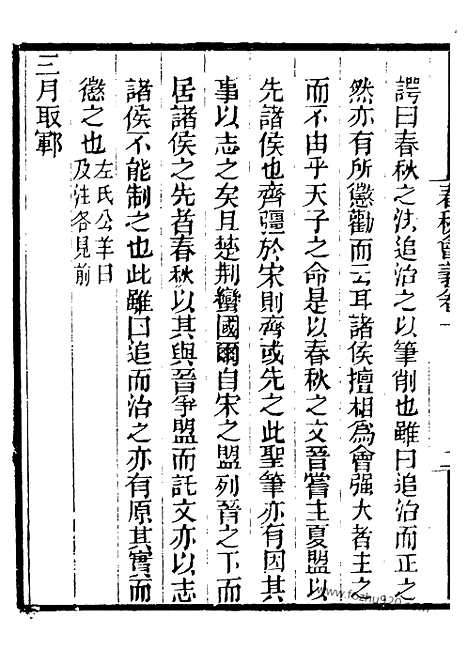 春秋會義卷十　二
諤曰春秋之法追治之以筆削也雖曰追治而正之
然亦有所懲勸而云耳諸侯擅相爲會强大者主之
而不由乎天子之命是以春秋之文晉嘗主夏盟以
先諸侯也齊彊於宋則齊或先之此聖筆亦有因其
事以志之矣且楚荆蠻國爾自宋之盟列晉之下而
居諸侯之先者春秋以其與晉爭盟而託文亦以志
諸侯不能制之也此雖曰追而治之亦有原其實而
懲之也左氏公羊曰
及注各見前
三月取鄆
www.fozhu920.com